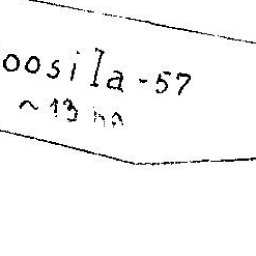 oosila-57
~13 на